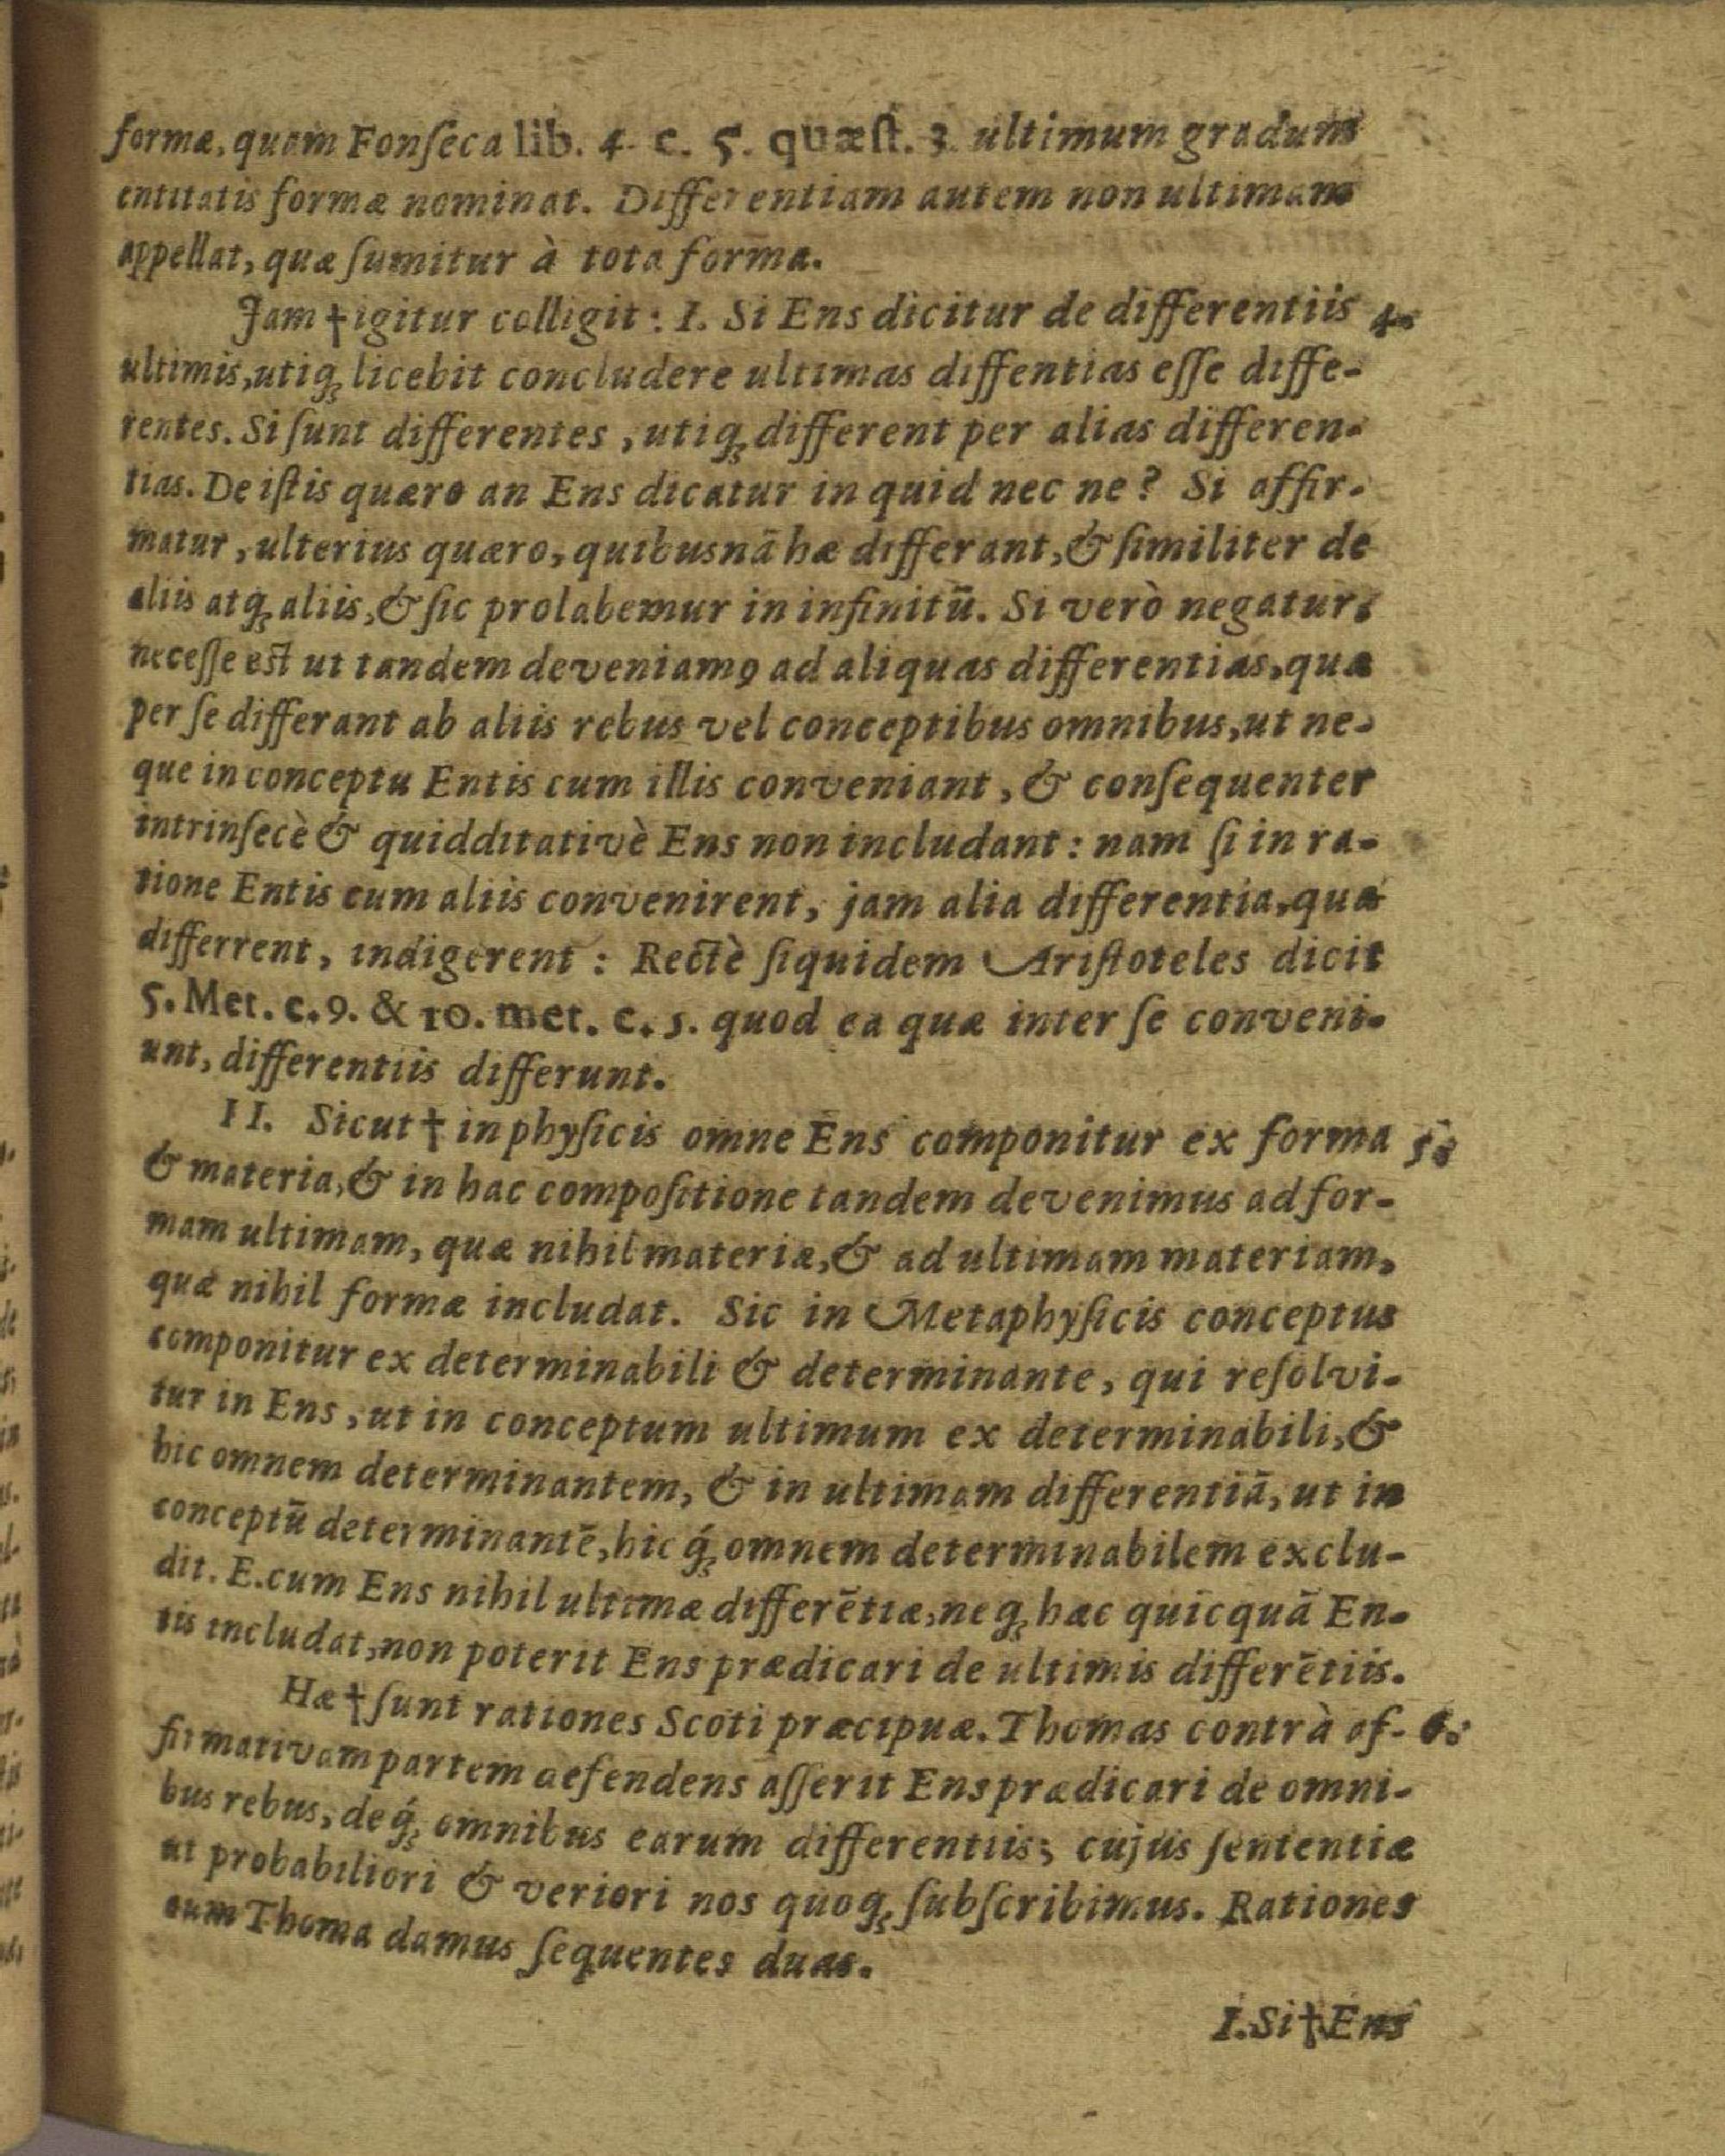 formæ, quam Fonſeca lib. 4. c. 5. quæſt. 3. ultimum gradum
entitatis formæ nominat. Differentiam autem non ultimam
appellat, quæ ſumitur à tota forma.
Jam † igitur colligit: I. Si Ens dicitur de differentiis 4.
ultimis, utiq́; licebit concludere ultimas diffentias eſſe diffe-
rentes. Si ſunt differentes, utiq́; different per alias differen-
tias. De iſtis quæro an Ens dicatur in quid nec ne? Si affir-
matur, ulterius quæro, quibusnā hæ differant, & ſimiliter de
aliis atq́; aliis, & ſic prolabemur in infinitū. Si verò negatur;
neceſſe eſt ut tandem deveniamꝰ ad aliquas differentias, quæ
per ſe differant ab aliis rebus vel conceptibus omnibus, ut ne-
que in conceptu Entis cum illis conveniant, & conſequenter
intrinſecè & quidditativè Ens non includant: nam ſi in ra-
tione Entis cum aliis convenirent, jam alia differentia, qua
differrent, indigerent: Rectè ſiquidem Ariſtoteles dicit
5. Met. c. 9. & 10. met. c. 5. quod ea quæ inter ſe conveni-
unt, differentiis differunt.
II. Sicut † in phyſicis omne Ens componitur ex forma 5.
& materia, & in hac compoſitione tandem devenimus ad for-
mam ultimam, quæ nihil materiæ, & ad ultimam materiam,
quæ nihil formæ includat. Sic in Metaphyſicis conceptus
componitur ex determinabili & determinante, qui reſolvi-
tur in Ens, ut in conceptum ultimum ex determinabili, &
hic omnem determinantem, & in ultimam differentiā, ut in
conceptū determinantē, hic q́; omnem determinabilem exclu-
dit. E. cum Ens nihil ultimæ differētiæ, neq́; hæc quicquā En-
tis includat, non poterit Ens prædicari de ultimis differētiis.
Hæ † ſunt rationes Scoti præcipuæ. Thomas contrà af- 6.
firmativam partem defendens aſſerit Ens prædicari de omni-
bus rebus, deq́; omnibus earum differentiis; cujus ſententiæ
ut probabiliori & veriori nos quoq́; ſubſcribimus. Rationes
cum Thoma damus ſequentes duas.
I. Si † Ens